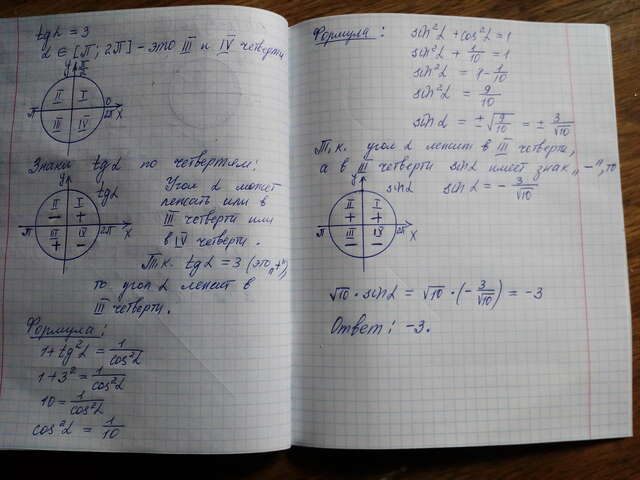 tg α = 3
α ∈ [π; 2π] - это III и IV четверти
y π/2
II I
π 0
III IV 2π x
Знаки tg α по четвертям:
y tg α
II I
- +
π 2π x
III IV
+ -
Угол α может
лежать или в
III четверти или
в IV четверти.
Т.к. tg α = 3 (это „+“),
то угол α лежит в
III четверти.
Формула:
1 + tg²α = 1/cos²α
1 + 3² = 1/cos²α
10 = 1/cos²α
cos²α = 1/10
Формула: sin²α + cos²α = 1
sin²α + 1/10 = 1
sin²α = 1 - 1/10
sin²α = 9/10
sin α = ± √9/10 = ± 3/√10
Т.к. угол α лежит в III четверти,
а в III четверти sin α имеет знак „-“, то
y sin α sin α = - 3/√10
II I
+ +
π 2π x
III IV
- -
√10 · sin α = √10 · (- 3/√10) = -3
Ответ: -3.